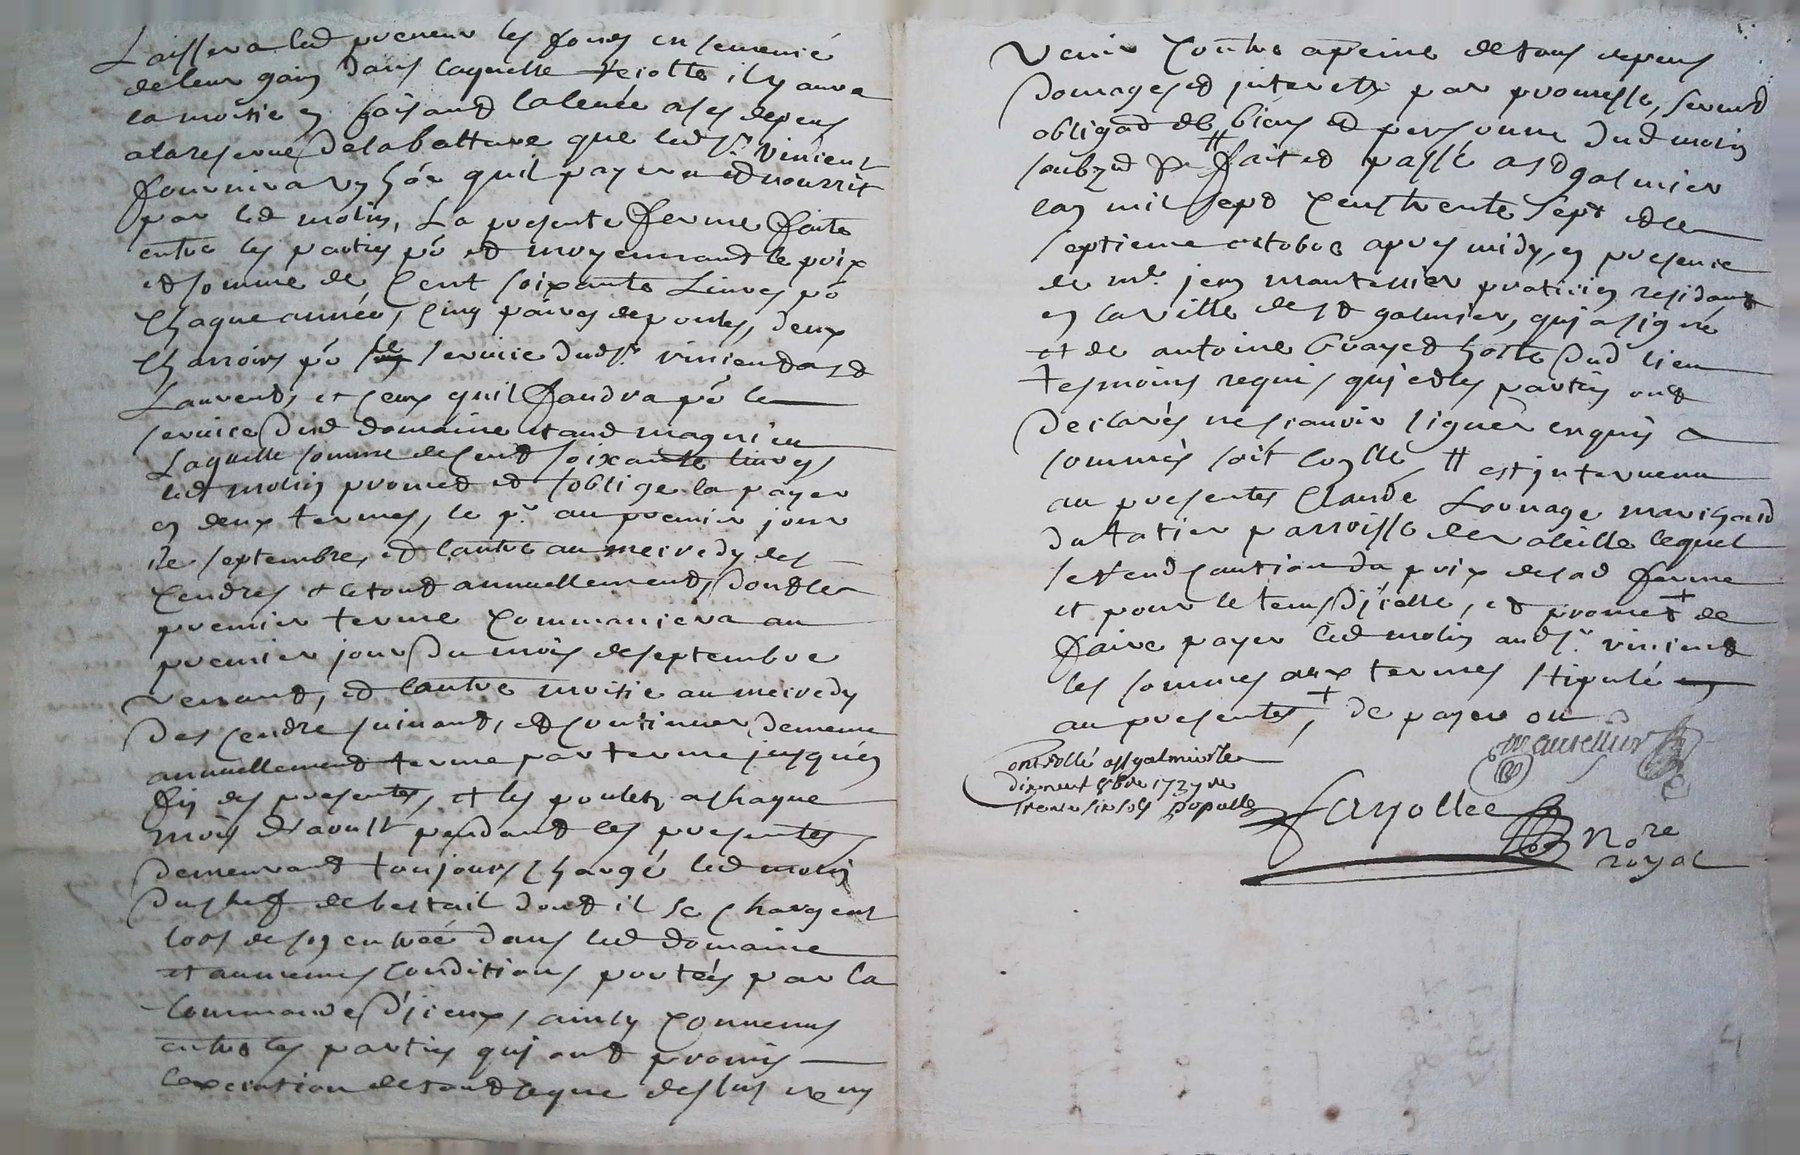 Laissera led preneur les fonds ensemencé
de leur gain dans laquelle recolte il y aura
la moitie en faisant la levée a ses depens
a la reserve de la batture que led Sr. Vincent
fournira un hõe quil payera et nourrit
par led molin, La presente ferme faite
entre les parties põ et moyennant le prix
et somme de Cent soixante Livres põ
Chaque année, Cinq paires de poulets, deux
Charrois põ le service dud Sr. vincent a St
Laurent, et ceux quil faudra põ le
service dud domaine
Laquelle somme de Cent soixante livres
led molin promet et soblige la payer
en deux termes, le pr. au premier jour
de septembre, et lautre au mecredy des
Cendres et le tout annuellement, dont le
premier terme Commancera au
premier jour du mois de septembre
venant, et lautre moitie au mecredy
des Cendre suivant, et continuer de meme
annuellement terme par terme jusques
fin des presentes, et les poulets a chaque
mois daoust pendant les presentes
demeurant toujours chargé led molin
du chef de bestail dont il se chargera
lors de son entrée dans led domaine
et aux memes Conditions portées par la
Commande diceux, ainsy Convenus
entre les parties qui ont promis
lexecution de tout ce que dessus ne
venir Contre a peine de tous depens
Domages et interetz par promesse, serment
obligaõn de biens et personne dud molin
soubzmis # fait et passé a St galmier
lan mil sept Cens trente sept et le
septieme octobre apres midy, en presence
de me. jean mantellier praticien residant
en la ville de st galmier, qui a signé
et de antoine hoste dud lieu
tesmoins requis qui et les parties ont
Declarés ne scavoir signer enquis a
sommés soit Conlle, # est intervenu
au presentes Claude marchand
du parroisse de lequel
se rend Caution du prix de lad ferme
et pour le tems dicelle, et promet + de
faire payer led molin aud Sr. vincent
les sommes aux termes stipulé
au presentes, + de payer ou
Mantellier
Controllé a St galmier le
dixneuf 8bre 1737 re
trente six sols Populle
Fayollee
Nore
royal